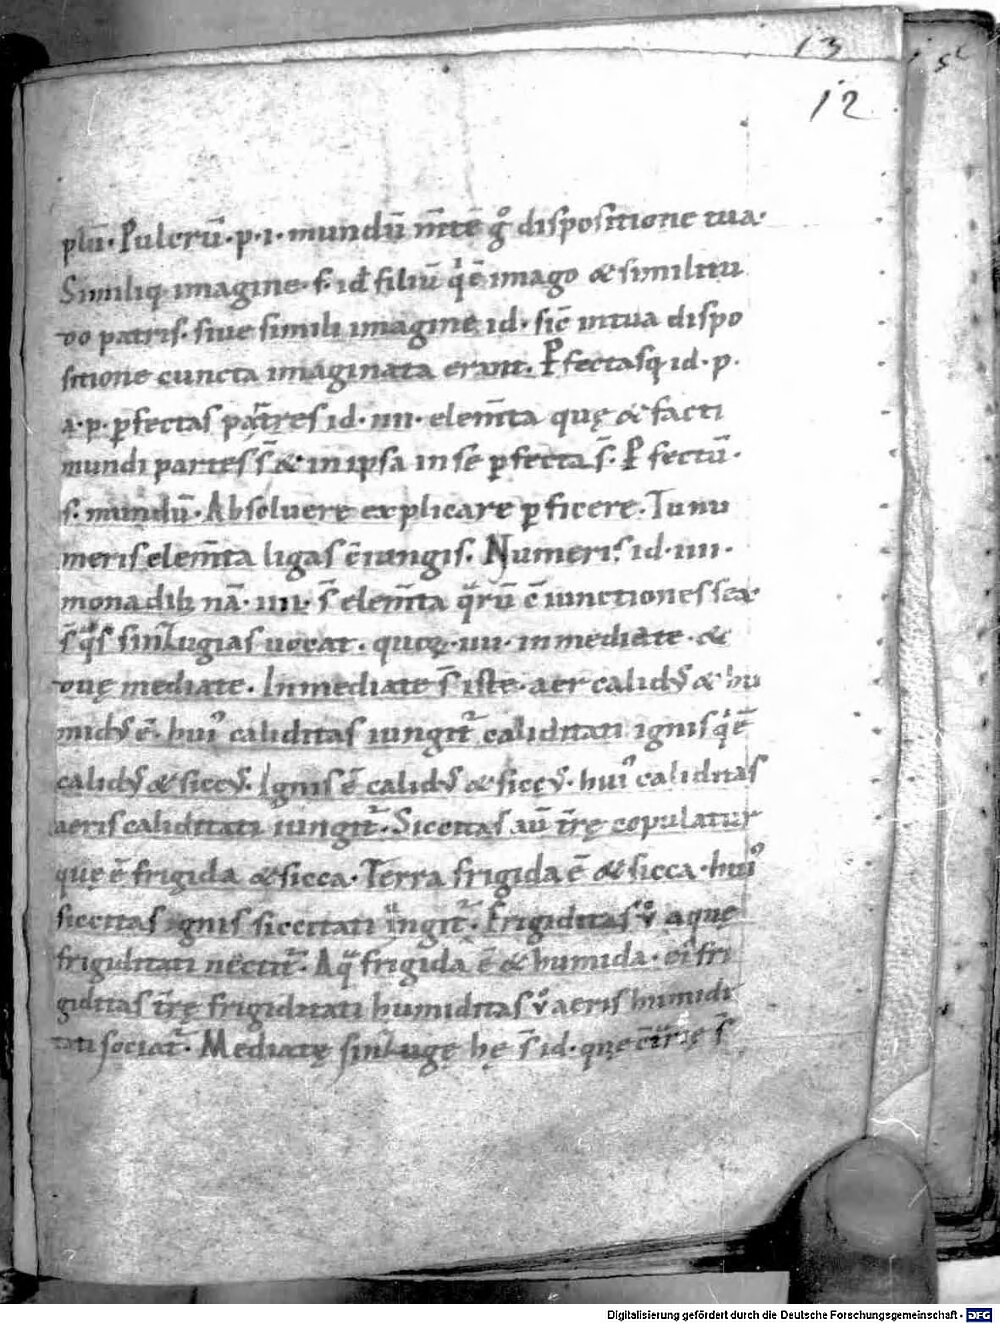 13
12
plū. Pulcrū. p. i. mundū m̄te g̊ dispositione tua.
Similiq. imagine. s. id filiū q̇ ē imago & similitu
do patris. siue simili imagine id. sic̄ intua dispo
sitione cuncta imaginata erant. Pfectasq id. p.
a. p. pfectas partes id. iiii. elem̄ta quę & facti
mundi partes s̄ & inipsa inse pfecta s̄. Pfectū.
s. mundū. Absoluere explicare pficere. Tu nu
meris elem̄ta ligas .i. iungis. Numeris id. iiii.
monadib; nā. iiii. s̄ elem̄ta q̄rū c̄iunctiones sex
s̄ q̄s uocat. quoꝝ. iiii. inmediate. &
duę mediate. Inmediate s̄ iste. aer calidꝰ & hu
midꝰ ē. huiꝰ caliditas iungit᷑ caliditati ignis q̇ ē
calidꝰ & siccꝰ. Ignis ē calidꝰ & siccꝰ. huiꝰ caliditas
aeris caliditati iungit᷑. Siccitas aū t̄rę copulatur
quę ē frigida & sicca. Terra frigida ē & sicca. huiꝰ
siccitas ignis siccitati iungit᷑. Frigiditas v̊ aque
frigiditati nectit᷑. Aq̄ frigida ē & humida. ei fri
giditas t̄rę frigiditati humiditas v̊ aeris humidi
tati sociat᷑. Mediatę hę s̄ id. que s̄
Digitalisierung gefördert durch die Deutsche Forschungsgemeinschaft - DFG